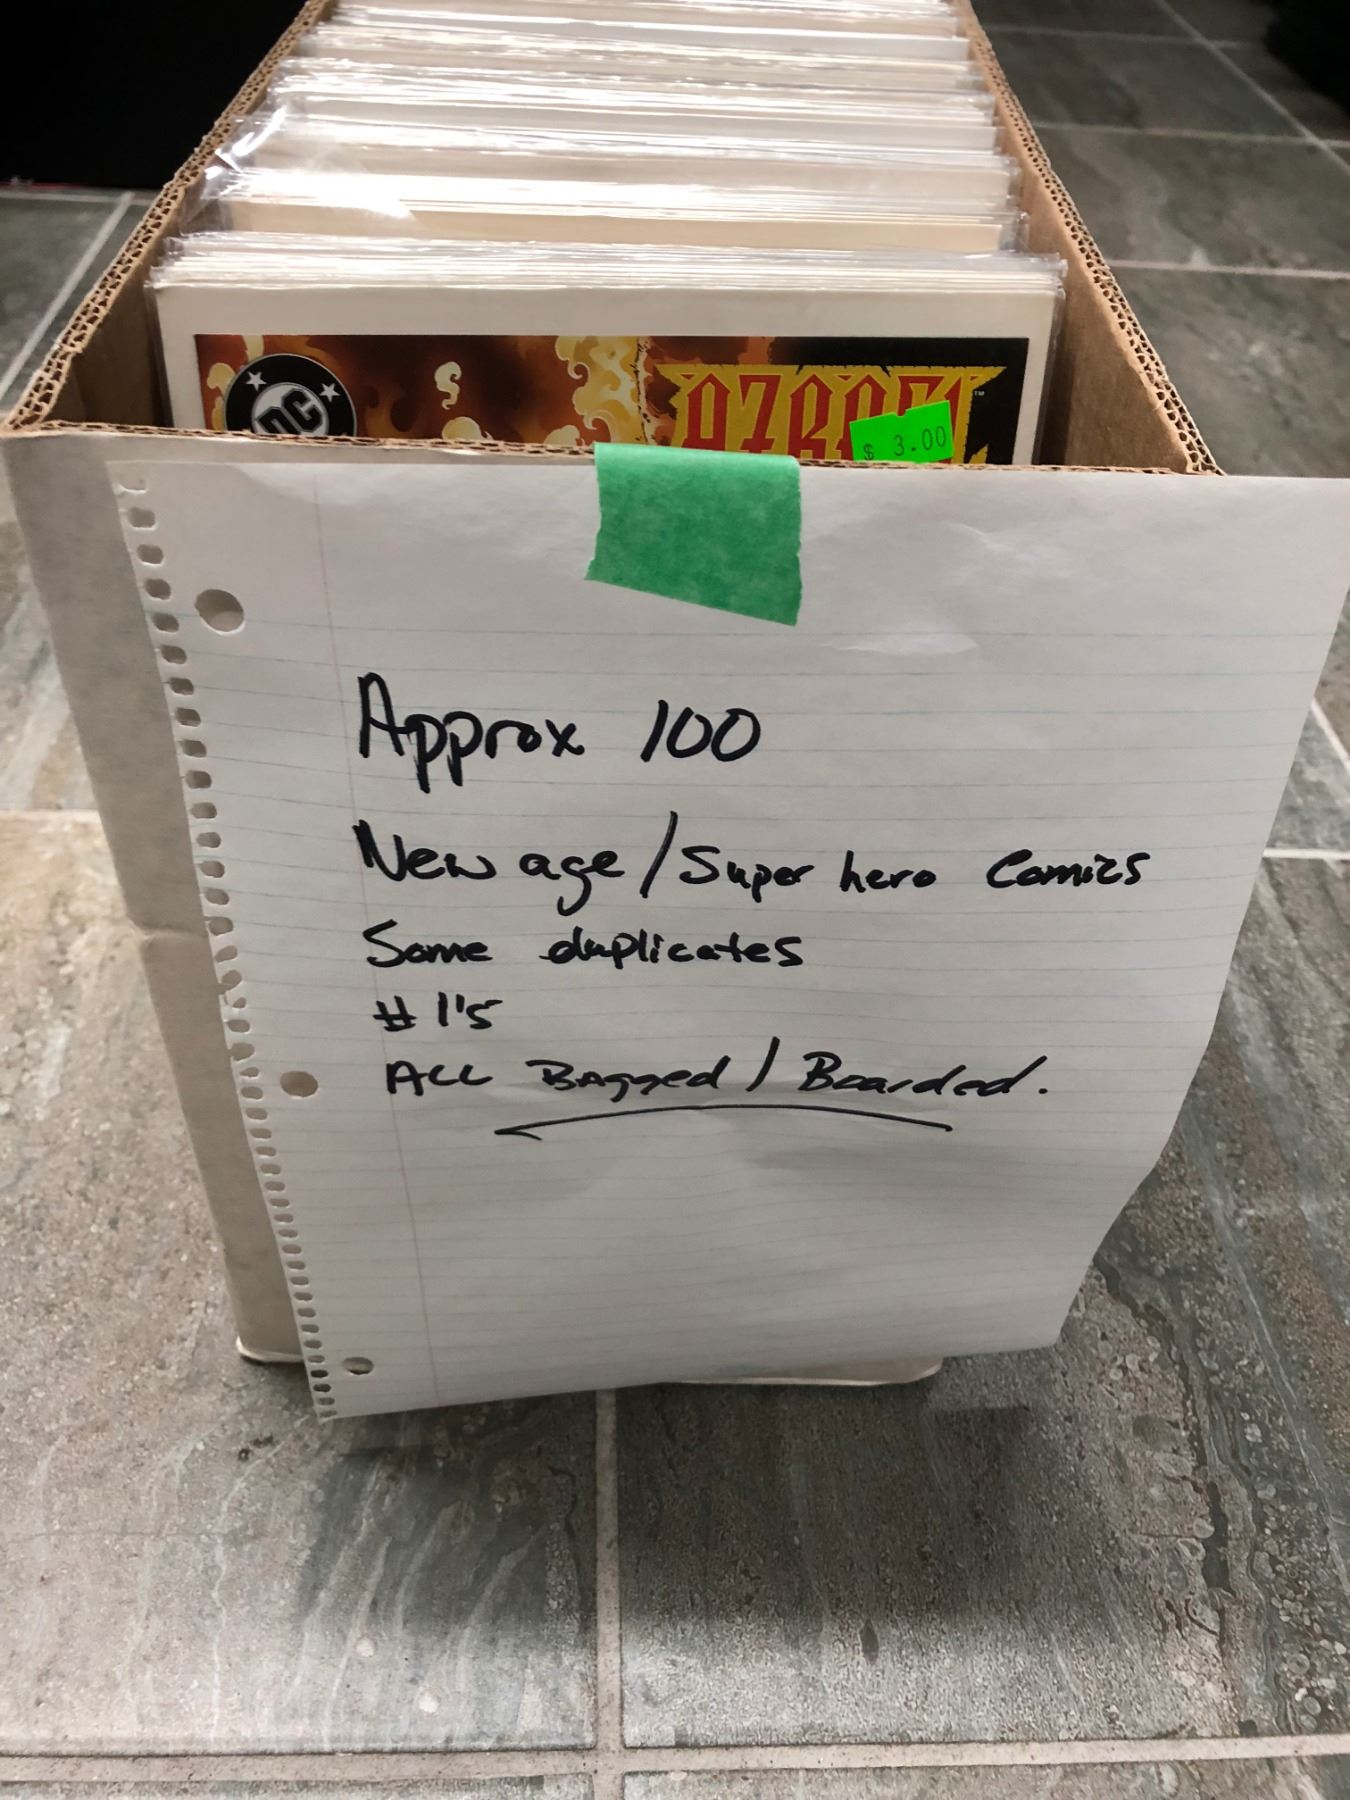 DC
AZRAEL
$ 3.00
Approx 100
New age / Super hero Comics
Some duplicates
# 1's
ALL Bagged / Boarded.